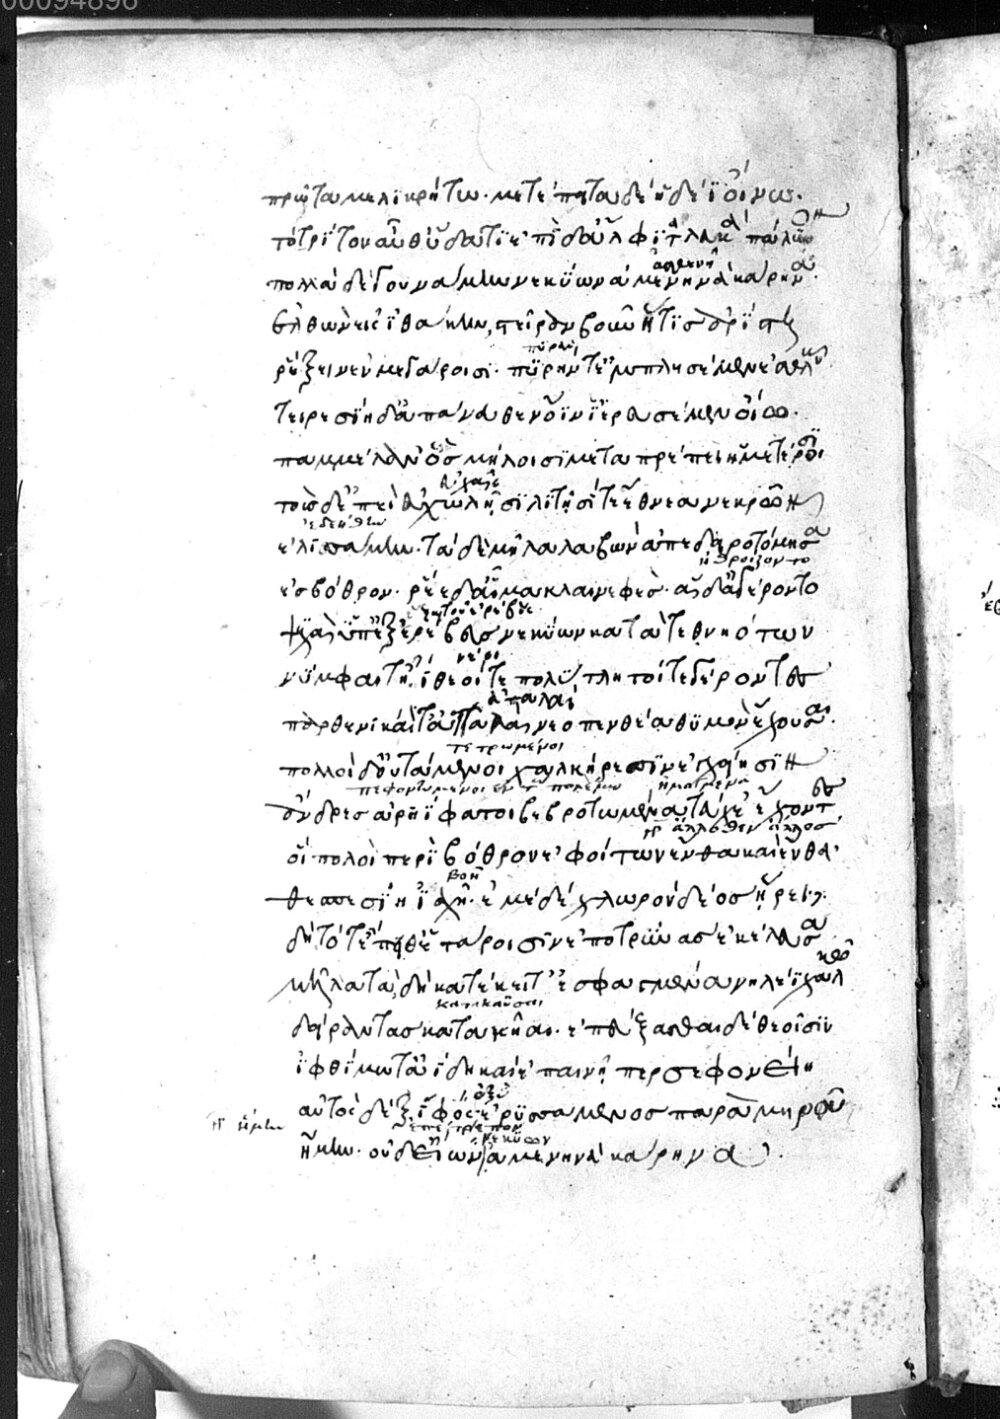 00094896
πρῶτα μελικρήτω· μετέπειτα δὲ ἡδέϊ οἴνω·
τὸ τρίτον αὖθ ὕδατι· ἐπὶ δ ἄλφιτα λευκὰ πάλυνον
πολλὰ δὲ γουνούμην νεκύων ἀμενηνὰ κάρηνα·
ἀσθενῆ
ἐλθὼν εἰς ἰθάκην, στεῖραν βοῦν ἥτις ἀρίστη
ῥέξειν ἐν μεγάροισι· πυρήν τ ἐμπλησέμεν ἐσθλῶν
τειρεσίη δ ἀπάνευθεν ὄϊν ἱερευσέμεν οἴω·
παμμέλαν ὃς μήλοισι μεταπρέπει ἡμετέροισι
τοὺς δ ἐπεὶ εὐχωλῇσι λιτῇσί τε ἔθνεα νεκρῶν
εὐχαῖς
ἐδεήθην
ἐλισάμην· τὰ δὲ μῆλα λαβὼν ἀπεδειροτόμησα
ἠθροίζοντο
ἐς βόθρον· ῥέε δ αἷμα κελαινεφὲς· αἱ δ ἀγέροντο
ψυχαὶ ὑπὲξ ἐρέβευς νεκύων κατατεθνηκότων
νέοι
νύμφαι τ ἠΐθεοί τε πολύτλητοί τε γέροντες
ἁπαλαὶ
παρθενικαί τ ἀταλαὶ νεοπενθέα θυμὸν ἔχουσαι·
τετρωμένοι
πολλοὶ δ οὐτάμενοι χαλκήρεσιν ἐγχείησιν
πεφονευμένοι ἐν τῷ πολέμω ἡματμένα
ἄνδρες ἀρηΐφατοι βεβροτωμένα τεύχε ἔχοντες
γρ ἄλλοθεν ἄλλος
οἳ πολλοὶ περὶ βόθρον ἐφοίτων ἔνθα καὶ ἔνθα·
βοῆ
θεσπεσίη ἰαχῆ· ἐμὲ δὲ χλωρὸν δέος ἥρει·
δὴ τότ ἔπειθ ἑτάροισιν ἐποτρύνας ἐκέλευσα
μῆλα τὰ δὴ κατέκειτ ἐσφαγμένα νηλέϊ χαλκῶ
κατακαῦσαι
δείραντας κατακῆαι· ἐπεύξασθαι δὲ θεοῖσιν
ἰφθίμω τ ἀΐδη καὶ ἐπαινῆ περσεφονείη
αὐτὸς δὲ ξίφος ὀξὺ ἐρυσσάμενος παρὰ μηροῦ
ἥμην· οὐδ εἴων νεκύων ἀμενηνὰ κάρηνα